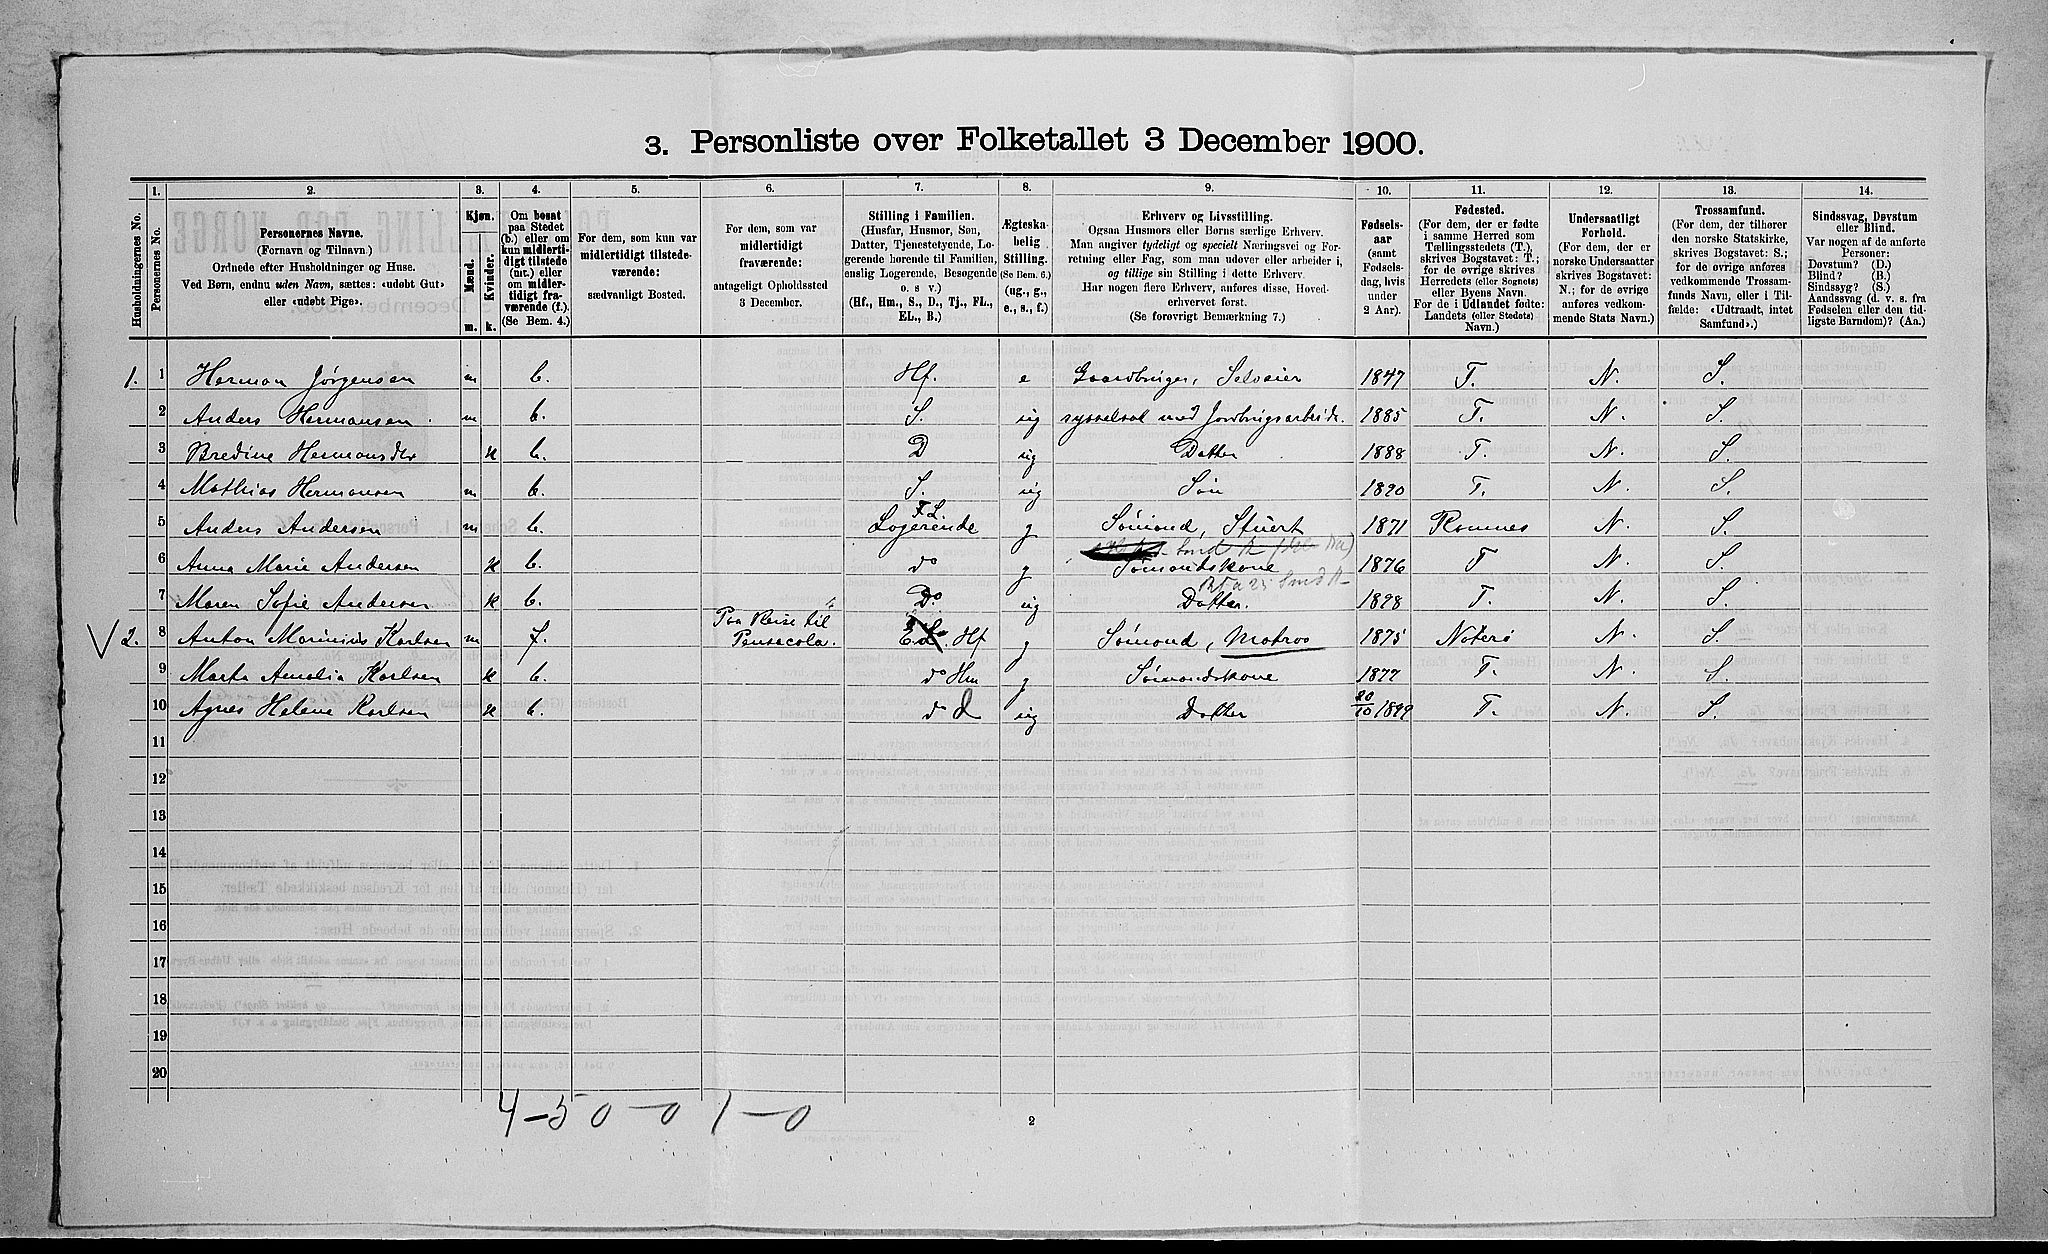 3. Personliste over Folketallet 3 December 1900.
Husholdningernes No.
1.
Personernes No.
2.
Personernes Navne.
(Fornavn og Tilnavn.)
Ordnede efter Husholdninger og Huse.
Ved Børn, endnu uden Navn, sættes: «udøbt Gut»
eller «udøbt Pige».
3.
Kjøn.
Mænd.
Kvinder.
m.
k.
4.
Om bosat
paa Stedet
(b.) eller om
kun midlerti-
digt tilstede
(mt.) eller
om midler-
tidigt fra-
værende (f.).
(Se Bem. 4.)
5.
For dem, som kun var
midlertidigt tilstede-
værende:
sædvanligt Bosted.
6.
For dem, som var
midlertidigt
fraværende:
antageligt Opholdssted
3 December.
7.
Stilling i Familien.
(Husfar, Husmor, Søn,
Datter, Tjenestetyende, Lo-
gerende hørende til Familien,
enslig Logerende, Besøgende
o. s v.)
(Hf., Hm., S., D., Tj., FL.,
EL., B.)
8.
Ægteska-
belig
Stilling.
(Se Bem. 6.)
(ug., g.,
e., s., f.)
9.
Erhverv og Livsstilling.
Ogsaa Husmors eller Børns særlige Erhverv.
Man angiver tydeligt og specielt Næringsvei og For-
retning eller Fag, som man udover eller arbeider i,
og tillige sin Stilling i dette Erhverv.
Har nogen flere Erhverv, anføres disse, Hoved-
erhvervet først.
(Se forøvrigt Bemærkning 7.)
10.
Fødsels-
aar
(samt
Fødsels-
dag, hvis
under
2 Aar).
11.
Fødested.
(For dem, der er fødte
i samme Herred som
Tællingsstedets (T.),
skrives Bogstavet: T.;
for de øvrige skrives
Herredets (eller Sognets)
eller Byens Navn.
For de i Udlandet fødte:
Landets (eller Stedets)
Navn.)
12.
Undersaatligt
Forhold.
(For dem, der er
norske Undersaatter
skrives Bogstavet:
N.; for de øvrige
anføres vedkom-
mende Stats Navn.)
13.
Trossamfund.
(For dem, der tilhører
den norske Statskirke,
skrives Bogstavet: S.;
for de øvrige anføres
vedkommende Trossam-
funds Navn, eller i Til-
fælde: «Udtraadt, intet
Samfund».)
14.
Sindssvag, Døvstum
eller Blind.
Var nogen af de anførte
Personer:
Døvstum? (D.)
Blind? (B.)
Sindssyg? (S.)
Aandssvag (d. v. s. fra
Fødselen eller den tid-
ligste Barndom)? (Aa.)
1. 1 Herman Jørgensen m b. Hf. e Gaardbruger, Selveier 1847 T. N. S.
2 Anders Hermansen m b. S. ug sysselsat med Jordbrugsarbeide. 1885 T. N. S.
3 Bredine Hermansdtr k b. D ug Datter 1888 T. N. S.
4 Mathias Hermansen m b. S. ug Søn 1890 T. N. S.
5 Anders Andersen m b. F.L Logerende g Sømand, Stuert 1871 Ramnes N. S.
6 Anna Marie Andersen k b. do g Sømandskone 1876 T N. S.
7 Maren Sofie Andersen k b. Do. ug Datter. 1898 T. N. S.
V 2. 8 Anton Marinius Karlsen m f. Paa Reise til Pensacola. Hf g Sømand, Matros 1875 Nøterø N. S.
9 Marta Amalia Karlsen k b. do Hm g Sømandskone 1877 T. N. S.
10 Agnes Helene Karlsen k b. do d ug Datter 20/10 1899 T. N. S.
11
12
13
14
15
16
17
18
19
20
4-5 0-0 1-0
2